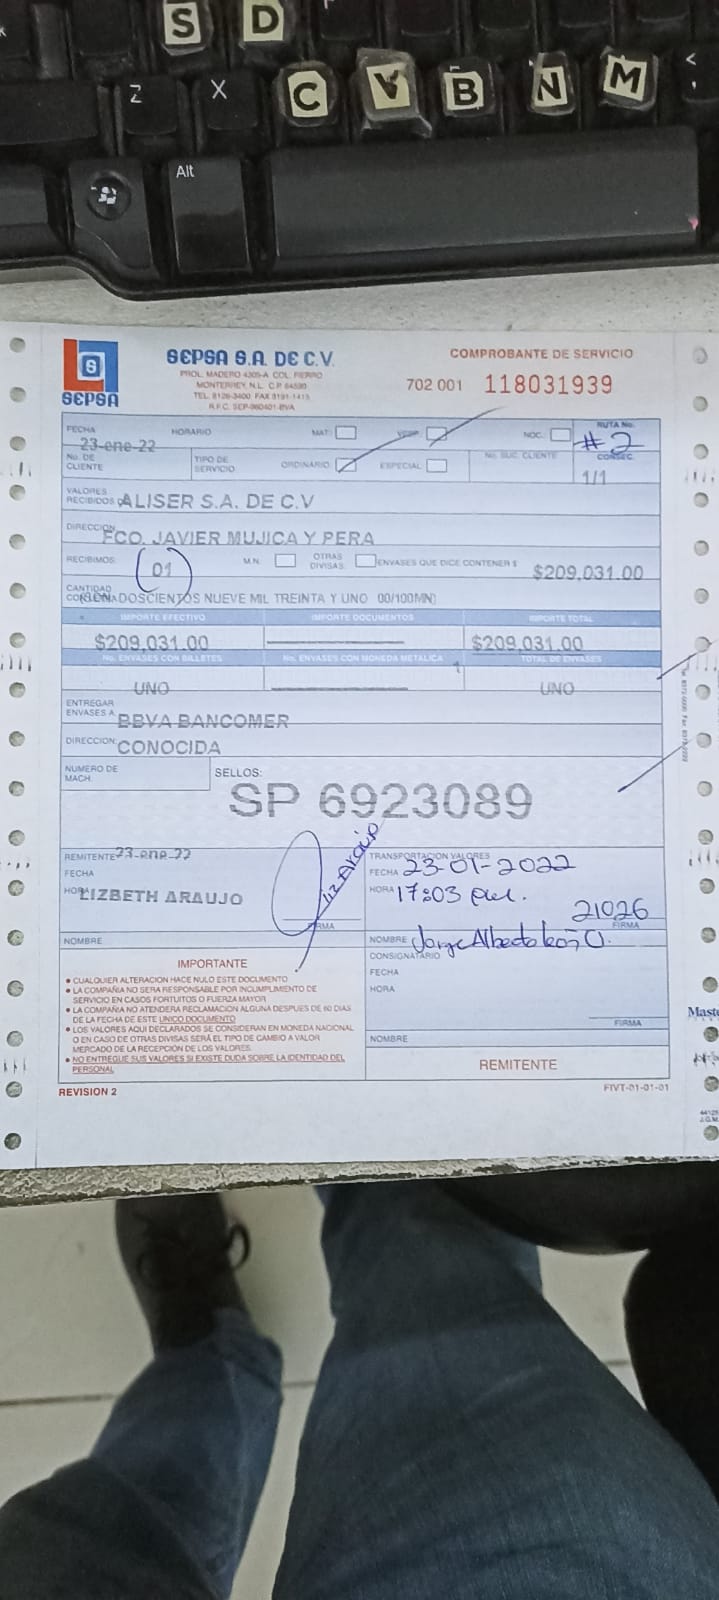 S D
Z X C V B N M <
Alt
SEPSA
SEPSA S.A. DE C.V.
PROL. MADERO 4305-A COL. FIERRO
MONTERREY, N.L. C.P. 64590
TEL. 8126-3400 FAX 8191-1415
R.F.C. SEP-960401-BVA
COMPROBANTE DE SERVICIO
702 001 118031939
FECHA HORARIO MAT. VESP. NOC. RUTA No.
23-ene-22 #2
No. DE CLIENTE TIPO DE SERVICIO ORDINARIO ESPECIAL No. SUC. CLIENTE CONSEC.
1/1
VALORES RECIBIDOS ALISER S.A. DE C.V
DIRECCION: FCO. JAVIER MUJICA Y PERA
RECIBIMOS: 01 M.N. OTRAS DIVISAS: ENVASES QUE DICE CONTENER $ $209,031.00
CANTIDAD
DOSCIENTOS NUEVE MIL TREINTA Y UNO 00/100MN)
IMPORTE EFECTIVO IMPORTE DOCUMENTOS IMPORTE TOTAL
$209,031.00 $209,031.00
No. ENVASES CON BILLETES No. ENVASES CON MONEDA METALICA TOTAL DE ENVASES
UNO UNO
ENTREGAR ENVASES A BBVA BANCOMER
DIRECCION: CONOCIDA
NUMERO DE MACH.
SELLOS: SP 6923089
REMITENTE 23-ene-22
FECHA
HORA LIZBETH ARAUJO
Liz Araujo
FIRMA
NOMBRE
TRANSPORTACION VALORES
FECHA 23-01-2022
HORA 17:03 pm.
21026
FIRMA
NOMBRE Jorge Alberto León O.
CONSIGNATARIO
FECHA
HORA
FIRMA
NOMBRE
REMITENTE
IMPORTANTE
• CUALQUIER ALTERACION HACE NULO ESTE DOCUMENTO
• LA COMPAÑIA NO SERA RESPONSABLE POR INCUMPLIMIENTO DE
SERVICIO EN CASOS FORTUITOS O FUERZA MAYOR
• LA COMPAÑIA NO ATENDERA RECLAMACION ALGUNA DESPUES DE 60 DIAS
DE LA FECHA DE ESTE UNICO DOCUMENTO
• LOS VALORES AQUI DECLARADOS SE CONSIDERAN EN MONEDA NACIONAL
O EN CASO DE OTRAS DIVISAS SERÁ EL TIPO DE CAMBIO A VALOR
MERCADO DE LA RECEPCIÓN DE LOS VALORES.
• NO ENTREGUE SUS VALORES SI EXISTE DUDA SOBRE LA IDENTIDAD DEL
PERSONAL
REVISION 2
FIVT-01-01-01